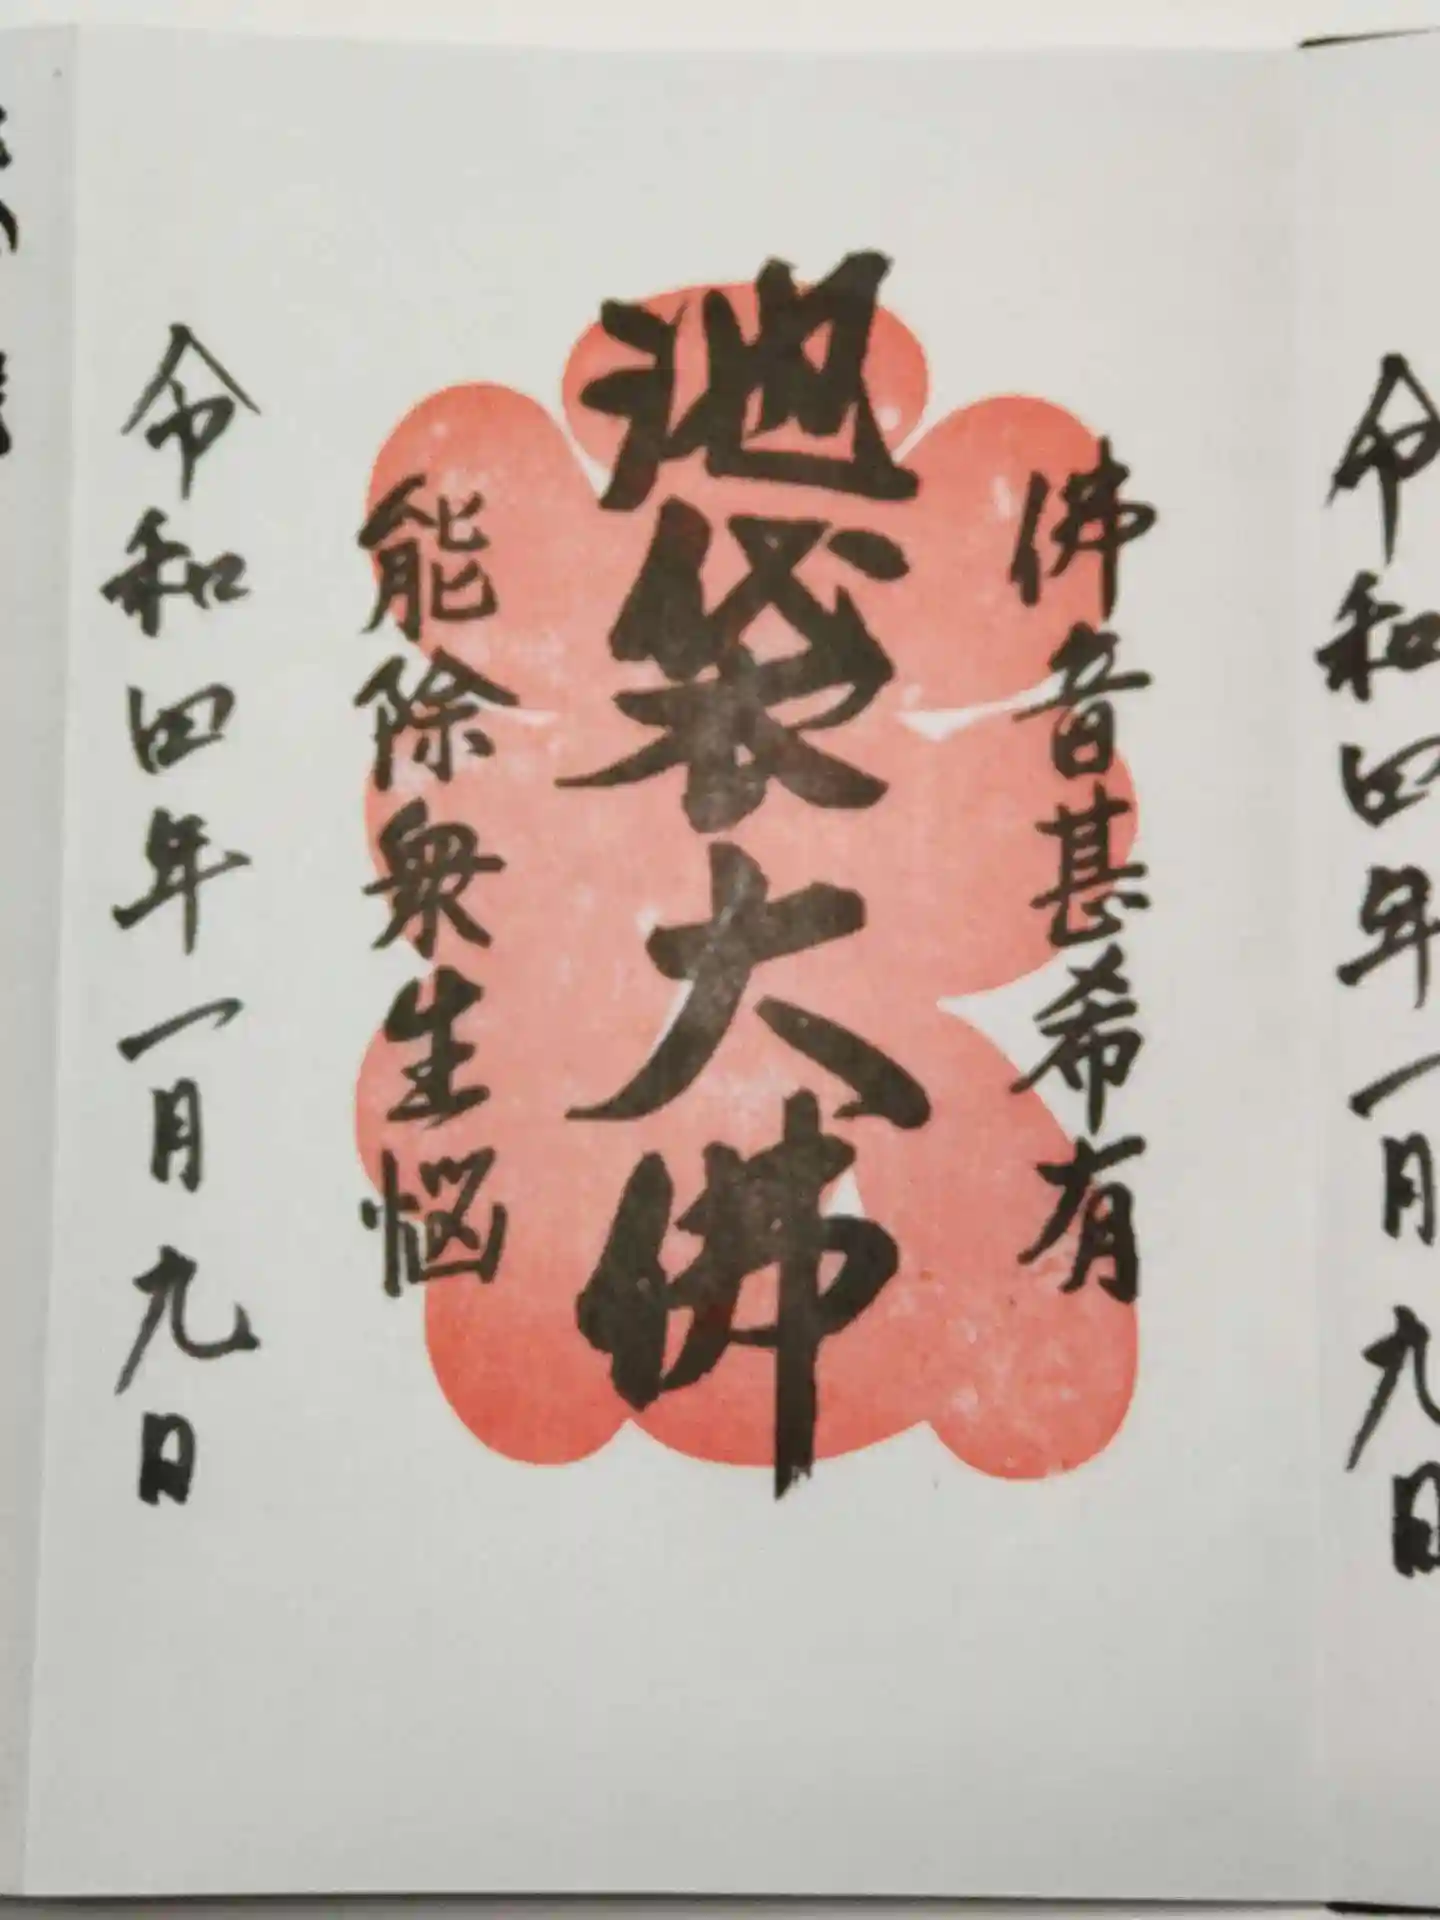 令和四年一月九日
佛音甚希有
池袋大佛
能除衆生惱
令和四年一月九日